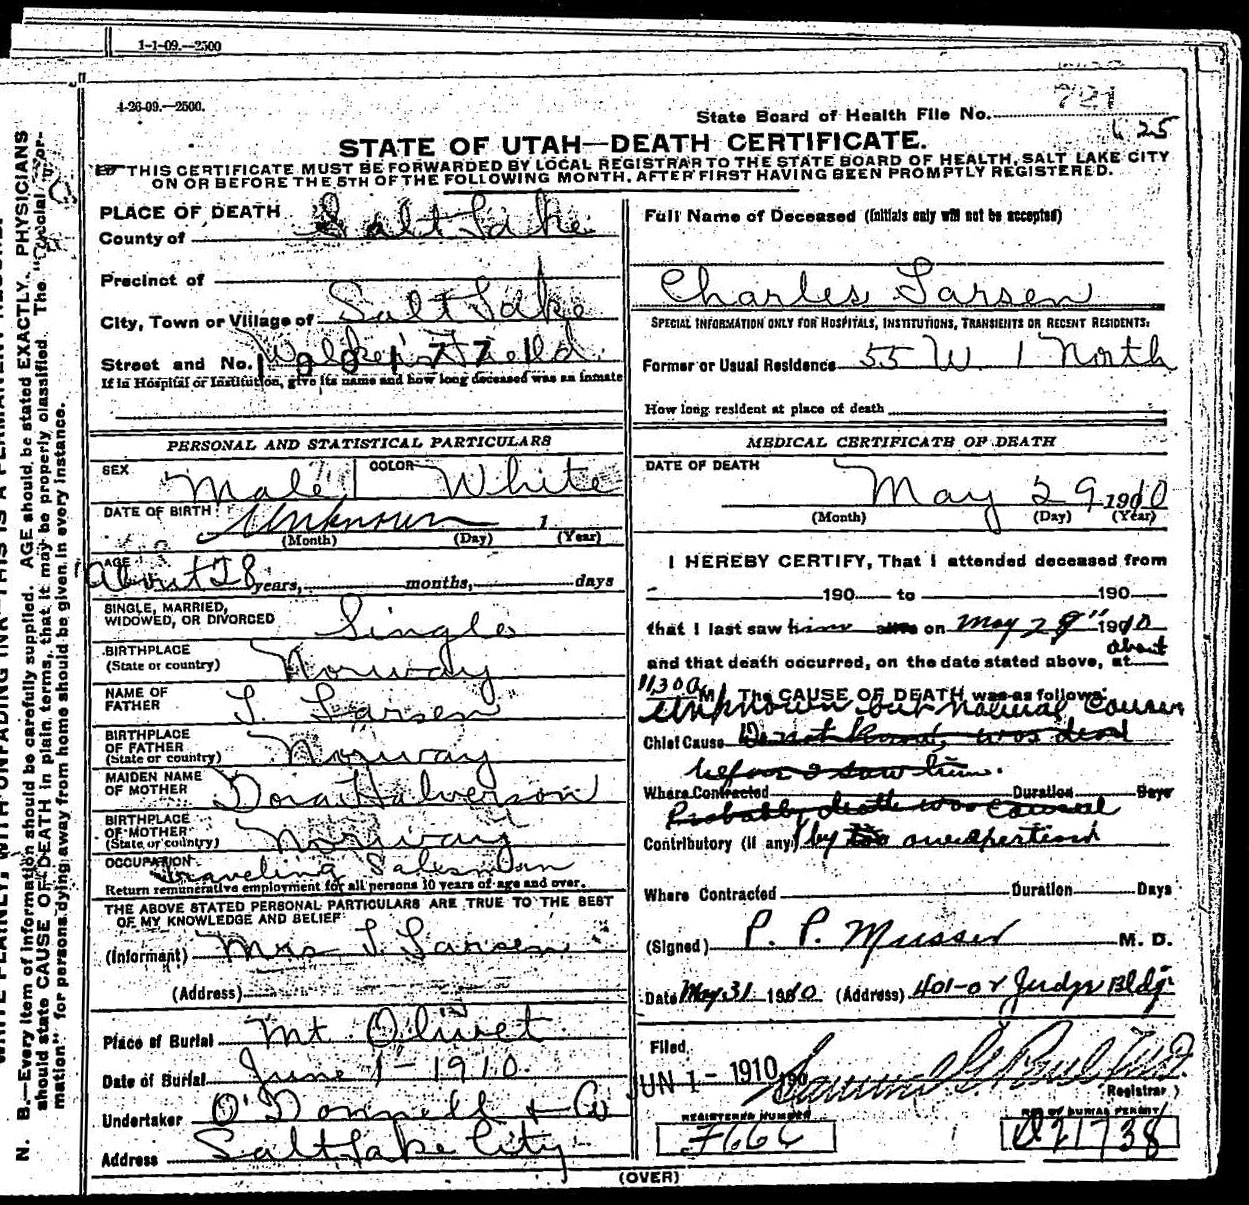 1-1-09.—2500
4-26-09.—2500.
State Board of Health File No. 721
625
STATE OF UTAH—DEATH CERTIFICATE.
THIS CERTIFICATE MUST BE FORWARDED BY LOCAL REGISTRAR TO THE STATE BOARD OF HEALTH, SALT LAKE CITY
ON OR BEFORE THE 5TH OF THE FOLLOWING MONTH, AFTER FIRST HAVING BEEN PROMPTLY REGISTERED.
PLACE OF DEATH
County of Salt Lake
Precinct of
City, Town or Village of Salt Lake
Street and No. Walker's Field
If in Hospital or Institution, give its name and how long deceased was an inmate
PERSONAL AND STATISTICAL PARTICULARS
SEX Male COLOR White
DATE OF BIRTH Unknown 1
(Month) (Day) (Year)
AGE About 28 years, months, days
SINGLE, MARRIED,
WIDOWED, OR DIVORCED Single
BIRTHPLACE
(State or country) Norway
NAME OF
FATHER L. Larsen
BIRTHPLACE
OF FATHER
(State or country) Norway
MAIDEN NAME
OF MOTHER Dora Halverson
BIRTHPLACE
OF MOTHER
(State or country) Norway
OCCUPATION Traveling Salesman
Return remunerative employment for all persons 10 years of age and over.
THE ABOVE STATED PERSONAL PARTICULARS ARE TRUE TO THE BEST
OF MY KNOWLEDGE AND BELIEF
(Informant) Mrs L. Larsen
(Address)
Place of Burial Mt Olivet
Date of Burial June 1 - 1910
Undertaker O'Donnell & Co
Address Salt Lake City
Full Name of Deceased (Initials only will not be accepted)
Charles Larsen
SPECIAL INFORMATION ONLY FOR HOSPITALS, INSTITUTIONS, TRANSIENTS OR RECENT RESIDENTS:
Former or Usual Residence 55 W. 1 North
How long resident at place of death
MEDICAL CERTIFICATE OF DEATH
DATE OF DEATH
May 29 1910
(Month) (Day) (Year)
I HEREBY CERTIFY, That I attended deceased from
190 to 190
that I last saw him alive on May 29" 1910
and that death occurred, on the date stated above, at about
11,30 a M. The CAUSE OF DEATH was as follows:
Unknown but natural causes
Chief Cause Do not know, was dead
before I saw him.
Where Contracted Duration Days
Probably death was caused
Contributory (if any) by too overexertion
Where Contracted Duration Days
(Signed) P. P. Musser M. D.
Date May 31 1910 (Address) 401-02 Judge Bldg
Filed
JUN 1 - 1910 190
Registrar
REGISTERED NUMBER
NO. OF BURIAL PERMIT
D21738
(OVER)
N. B.—Every item of information should be carefully supplied. AGE should be stated EXACTLY. PHYSICIANS
should state CAUSE OF DEATH in plain terms, that it may be properly classified. The "Special Infor-
mation" for persons dying away from home should be given in every instance.